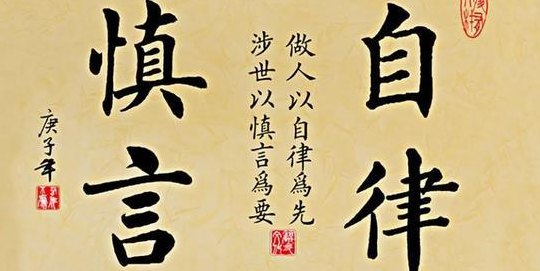 自律
做人以自律為先
涉世以慎言為要
慎言
庚子年